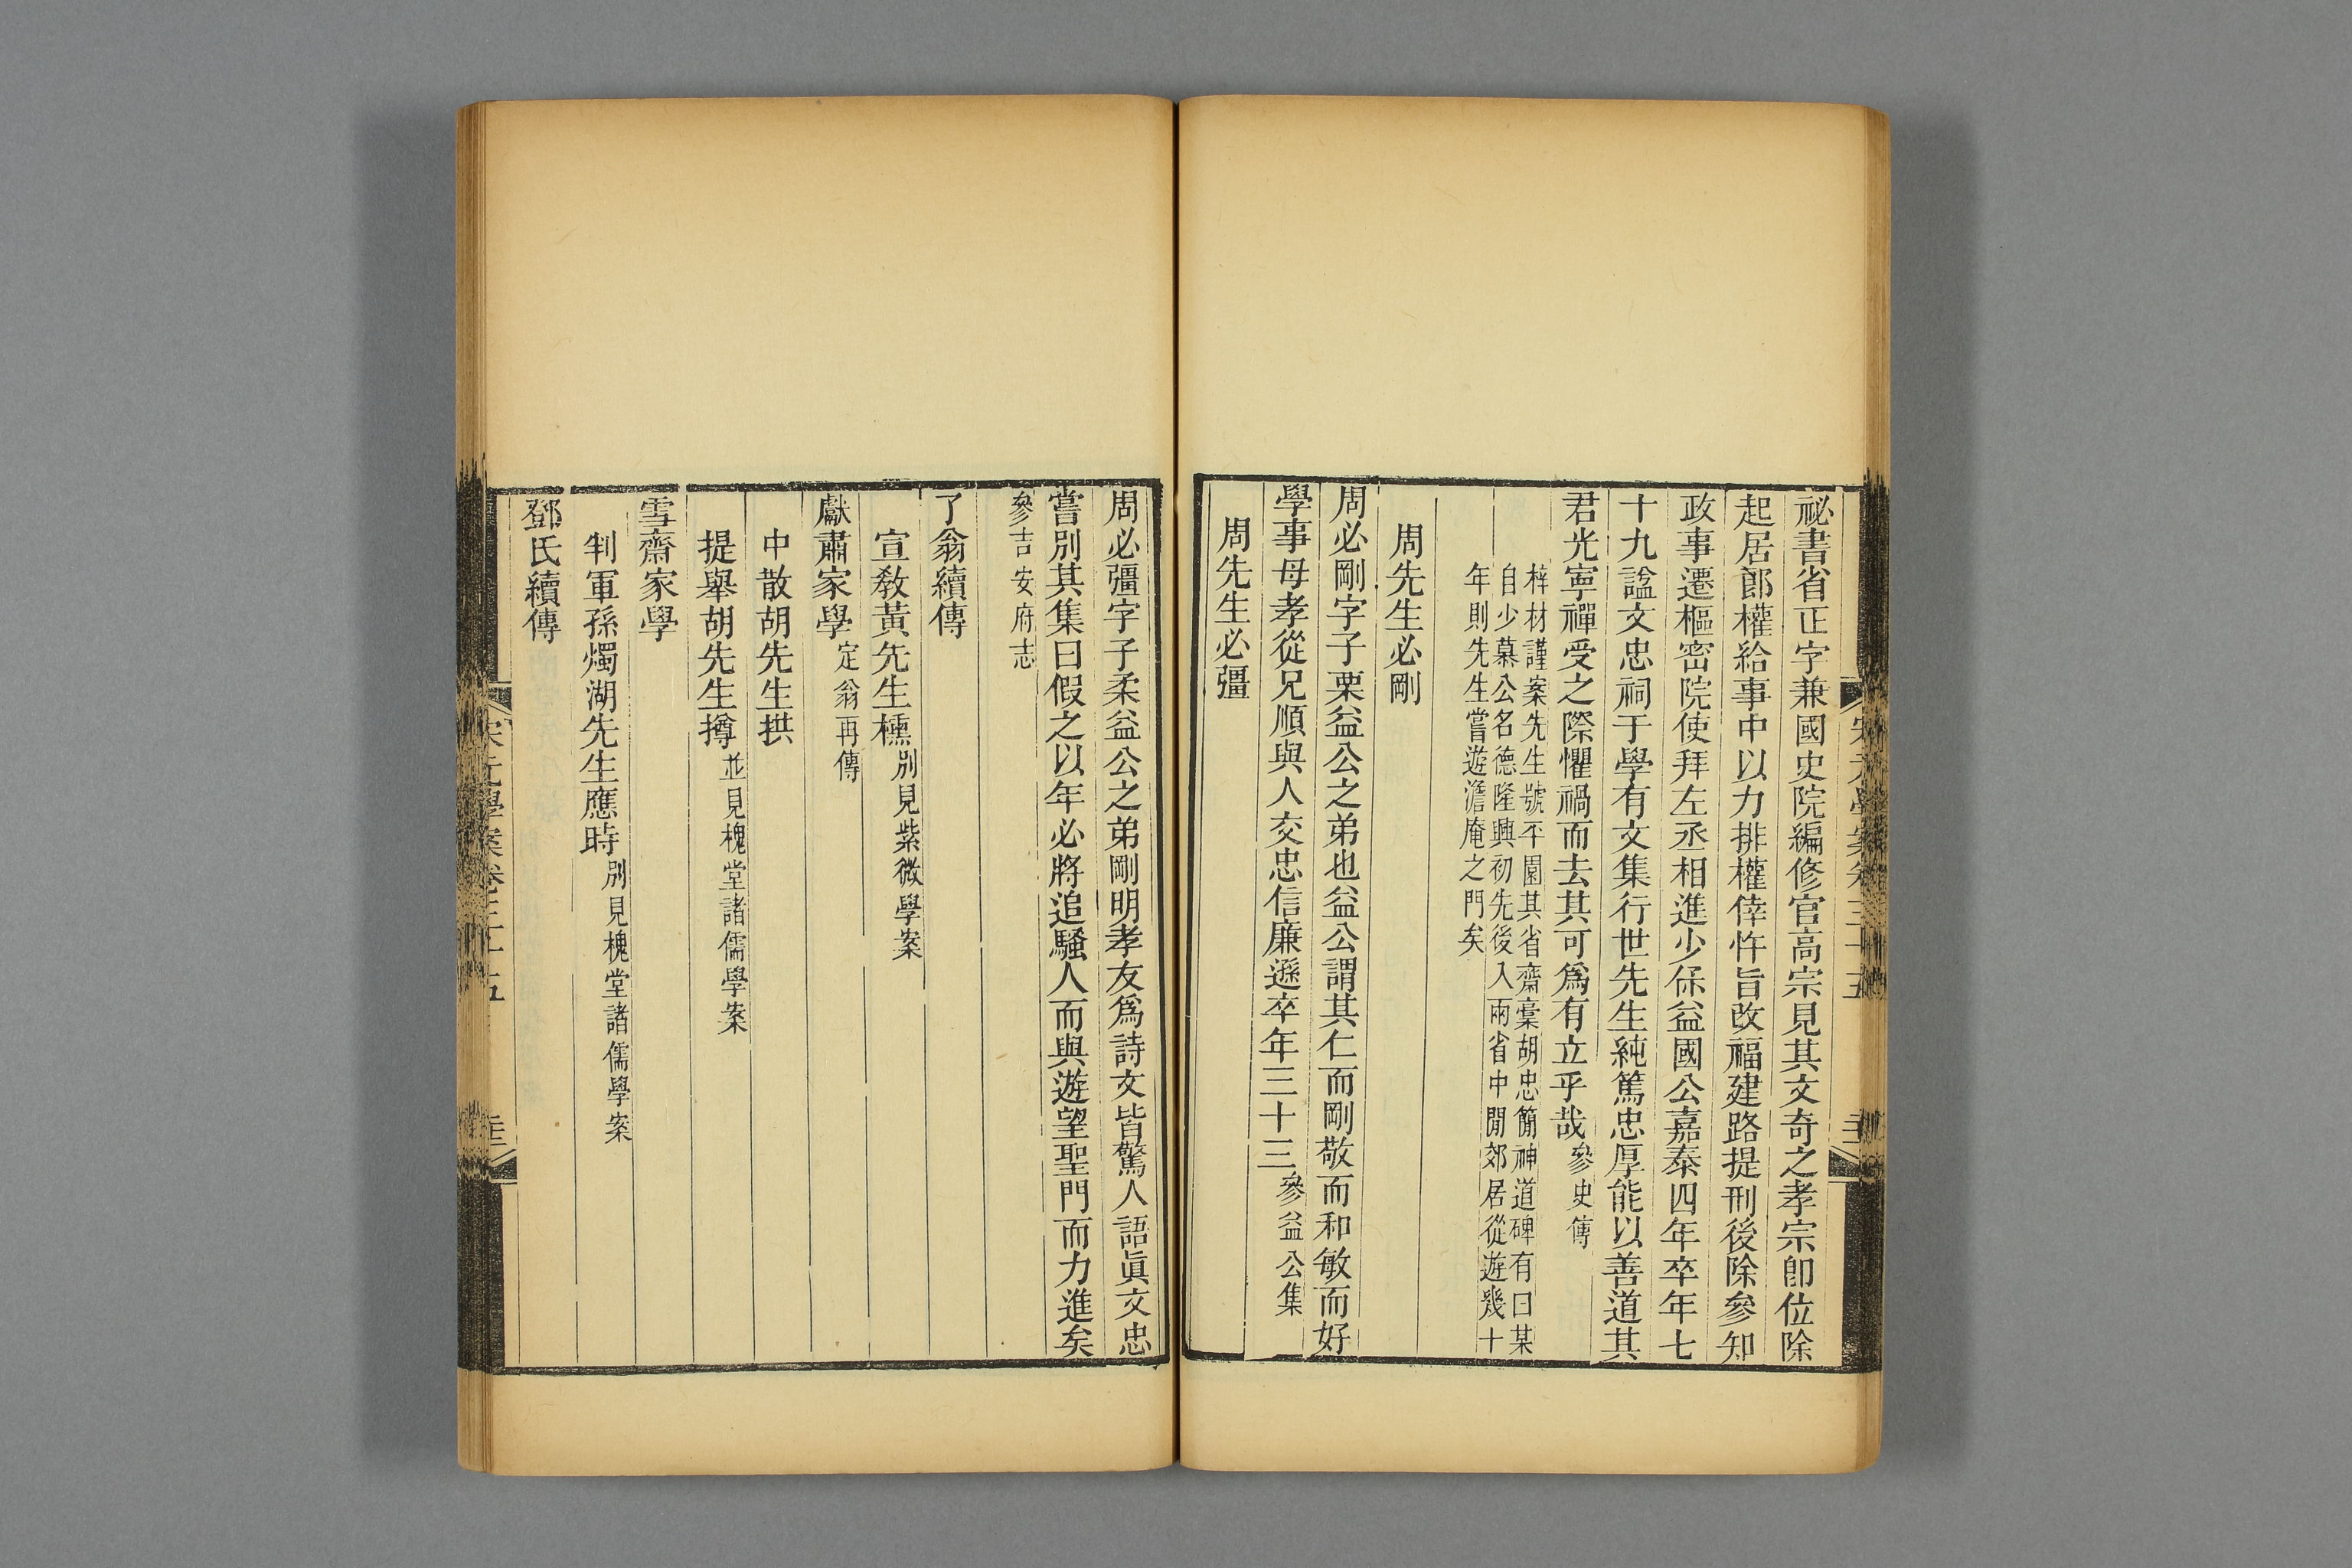 祕書省正字兼國史院編修官高宗見其文奇之孝宗卽位除
起居郎權給事中以力排權倖忤旨改福建路提刑後除參知
政事遷樞密院使拜左丞相進少保益國公嘉泰四年卒年七
十九諡文忠祠于學有文集行世先生純篤忠厚能以善道其
君光寧禪受之際懼禍而去其可爲有立乎哉參史傳
梓材謹案先生號平園其省齋稾胡忠簡神道碑有曰某
自少慕公名德隆興初先後入兩省中閒郊居從遊幾十
年則先生嘗遊澹庵之門矣
周先生必剛
周必剛字子栗益公之弟也益公謂其仁而剛敬而和敏而好
學事母孝從兄順與人交忠信廉遜卒年三十三參益公集
周先生必彊
周必彊字子柔益公之弟剛明孝友爲詩文皆驚人語眞文忠
嘗別其集曰假之以年必將追騷人而與遊望聖門而力進矣
參吉安府志
了翁續傳
宣敎黃先生櫄別見紫微學案
獻肅家學定翁再傳
中散胡先生拱
提舉胡先生撙並見槐堂諸儒學案
雪齋家學
判軍孫燭湖先生應時別見槐堂諸儒學案
鄧氏續傳
宋元學案卷三十五